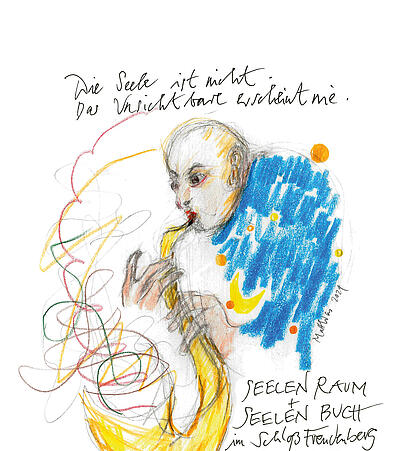 Die Seele ist nicht.
Das Unsichtbare erscheint nie.
2021
SEELEN RAUM
+
SEELEN BUCH
im Schloß Freudenberg